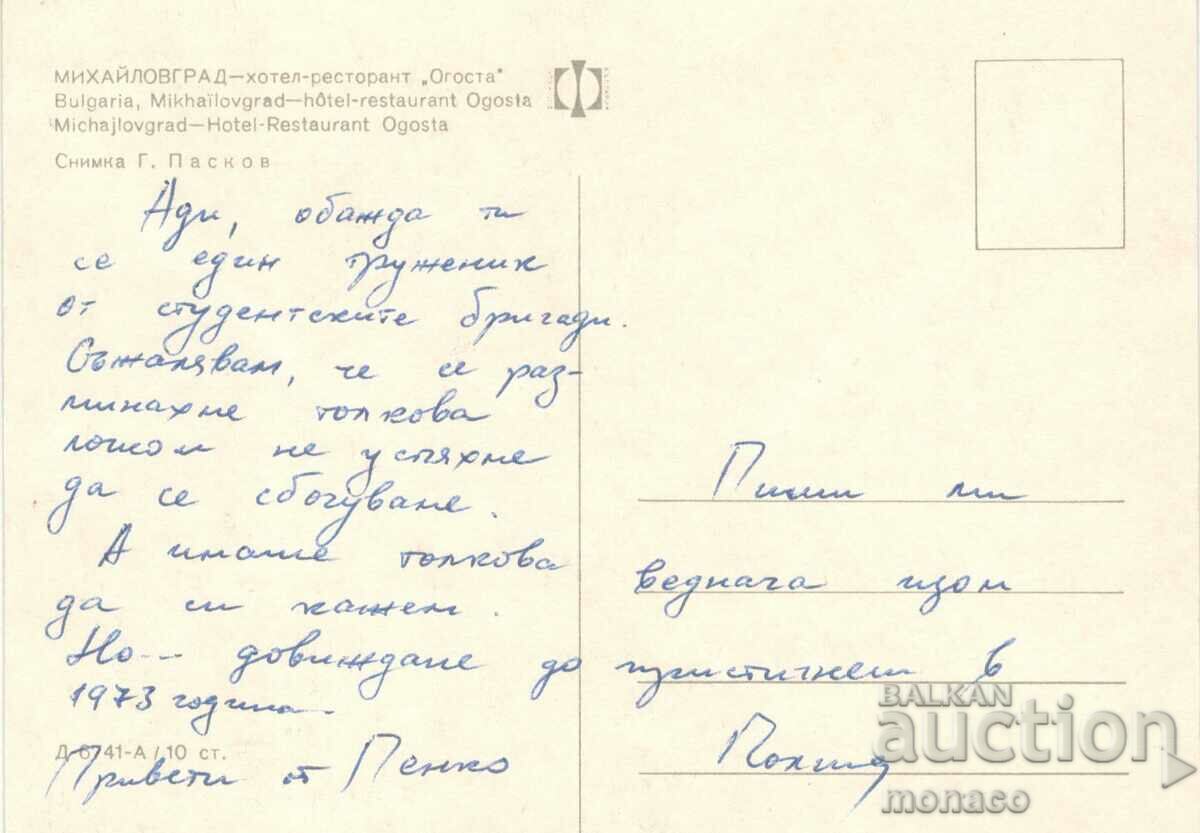 МИХАЙЛОВГРАД—хотел-ресторант „Огоста"
Bulgaria, Mikhaïlovgrad—hôtel-restaurant Ogosta
Michajlovgrad—Hotel-Restaurant Ogosta
Снимка Г. Пасков
Ади, обажда ти
се един труженик
от студентските бригади.
Съжалявам, че се раз-
минахме толкова
лошо и не успяхме
да се сбогуваме.
А имаше толкова
да си кажем.
Но... довиждане до
1973 година.
Д-6741-А / 10 ст.
Привети от Пенко
Пиши ми
веднага щом
пристигнеш в
BALKAN
auction
monaco